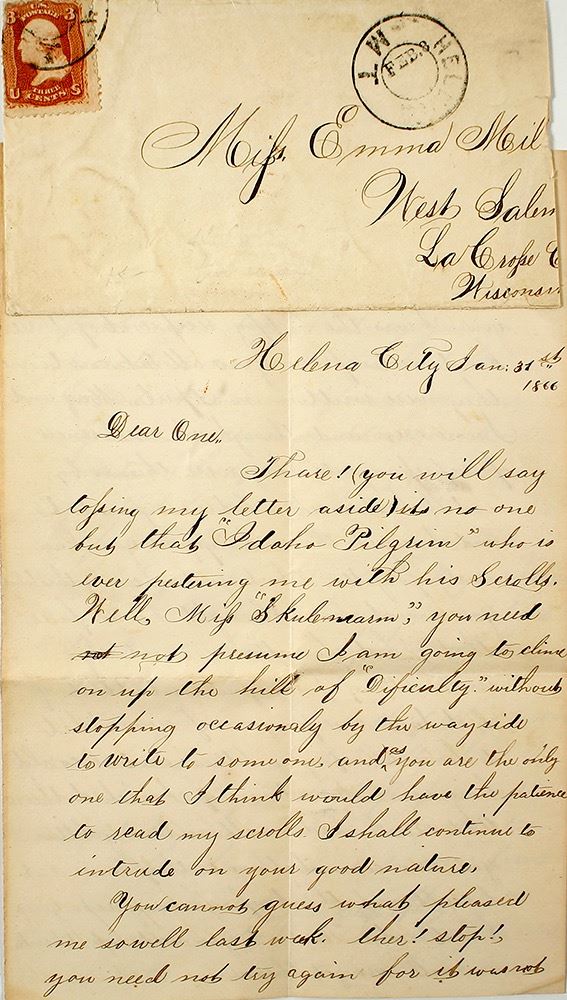 3 U.S. 3
POSTAGE
U THREE CENTS S
HELE
FEB 8
Miss Emma Mil
West Salem
La Crosse C
Wisconsin
Helena City Jan: 31st
1866
Dear One,,
Thare! (you will say
tossing my letter aside) its no one
but that "Idaho Pilgrim" who is
ever pestering me with his Scrolls.
Well, Miss "Skulemarm", you need
not not presume I am going to clime
on up the hill of "Dificulty" without
stopping occasionaly by the wayside
to write to someone, and as you are the only
one that I think would have the patience
to read my scrolls I shall continue to
intrude on your good nature,
You cannot guess what pleased
me sowell last week. ther! stop!,
you need not try again for it was not